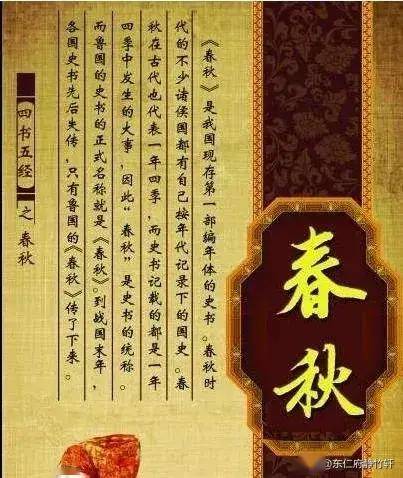 春秋
《春秋》是我国现存第一部编年体的史书。春秋时
代的不少诸侯国都有自己按年代记录下的国史。春
秋在古代也代表一年四季，而史书记载的都是一年
四季中发生的大事，因此“春秋”是史书的统称。
而鲁国的史书的正式名称就是《春秋》。到战国末年，
各国史书先后失传，只有鲁国的《春秋》传了下来。
四书五经之 春秋